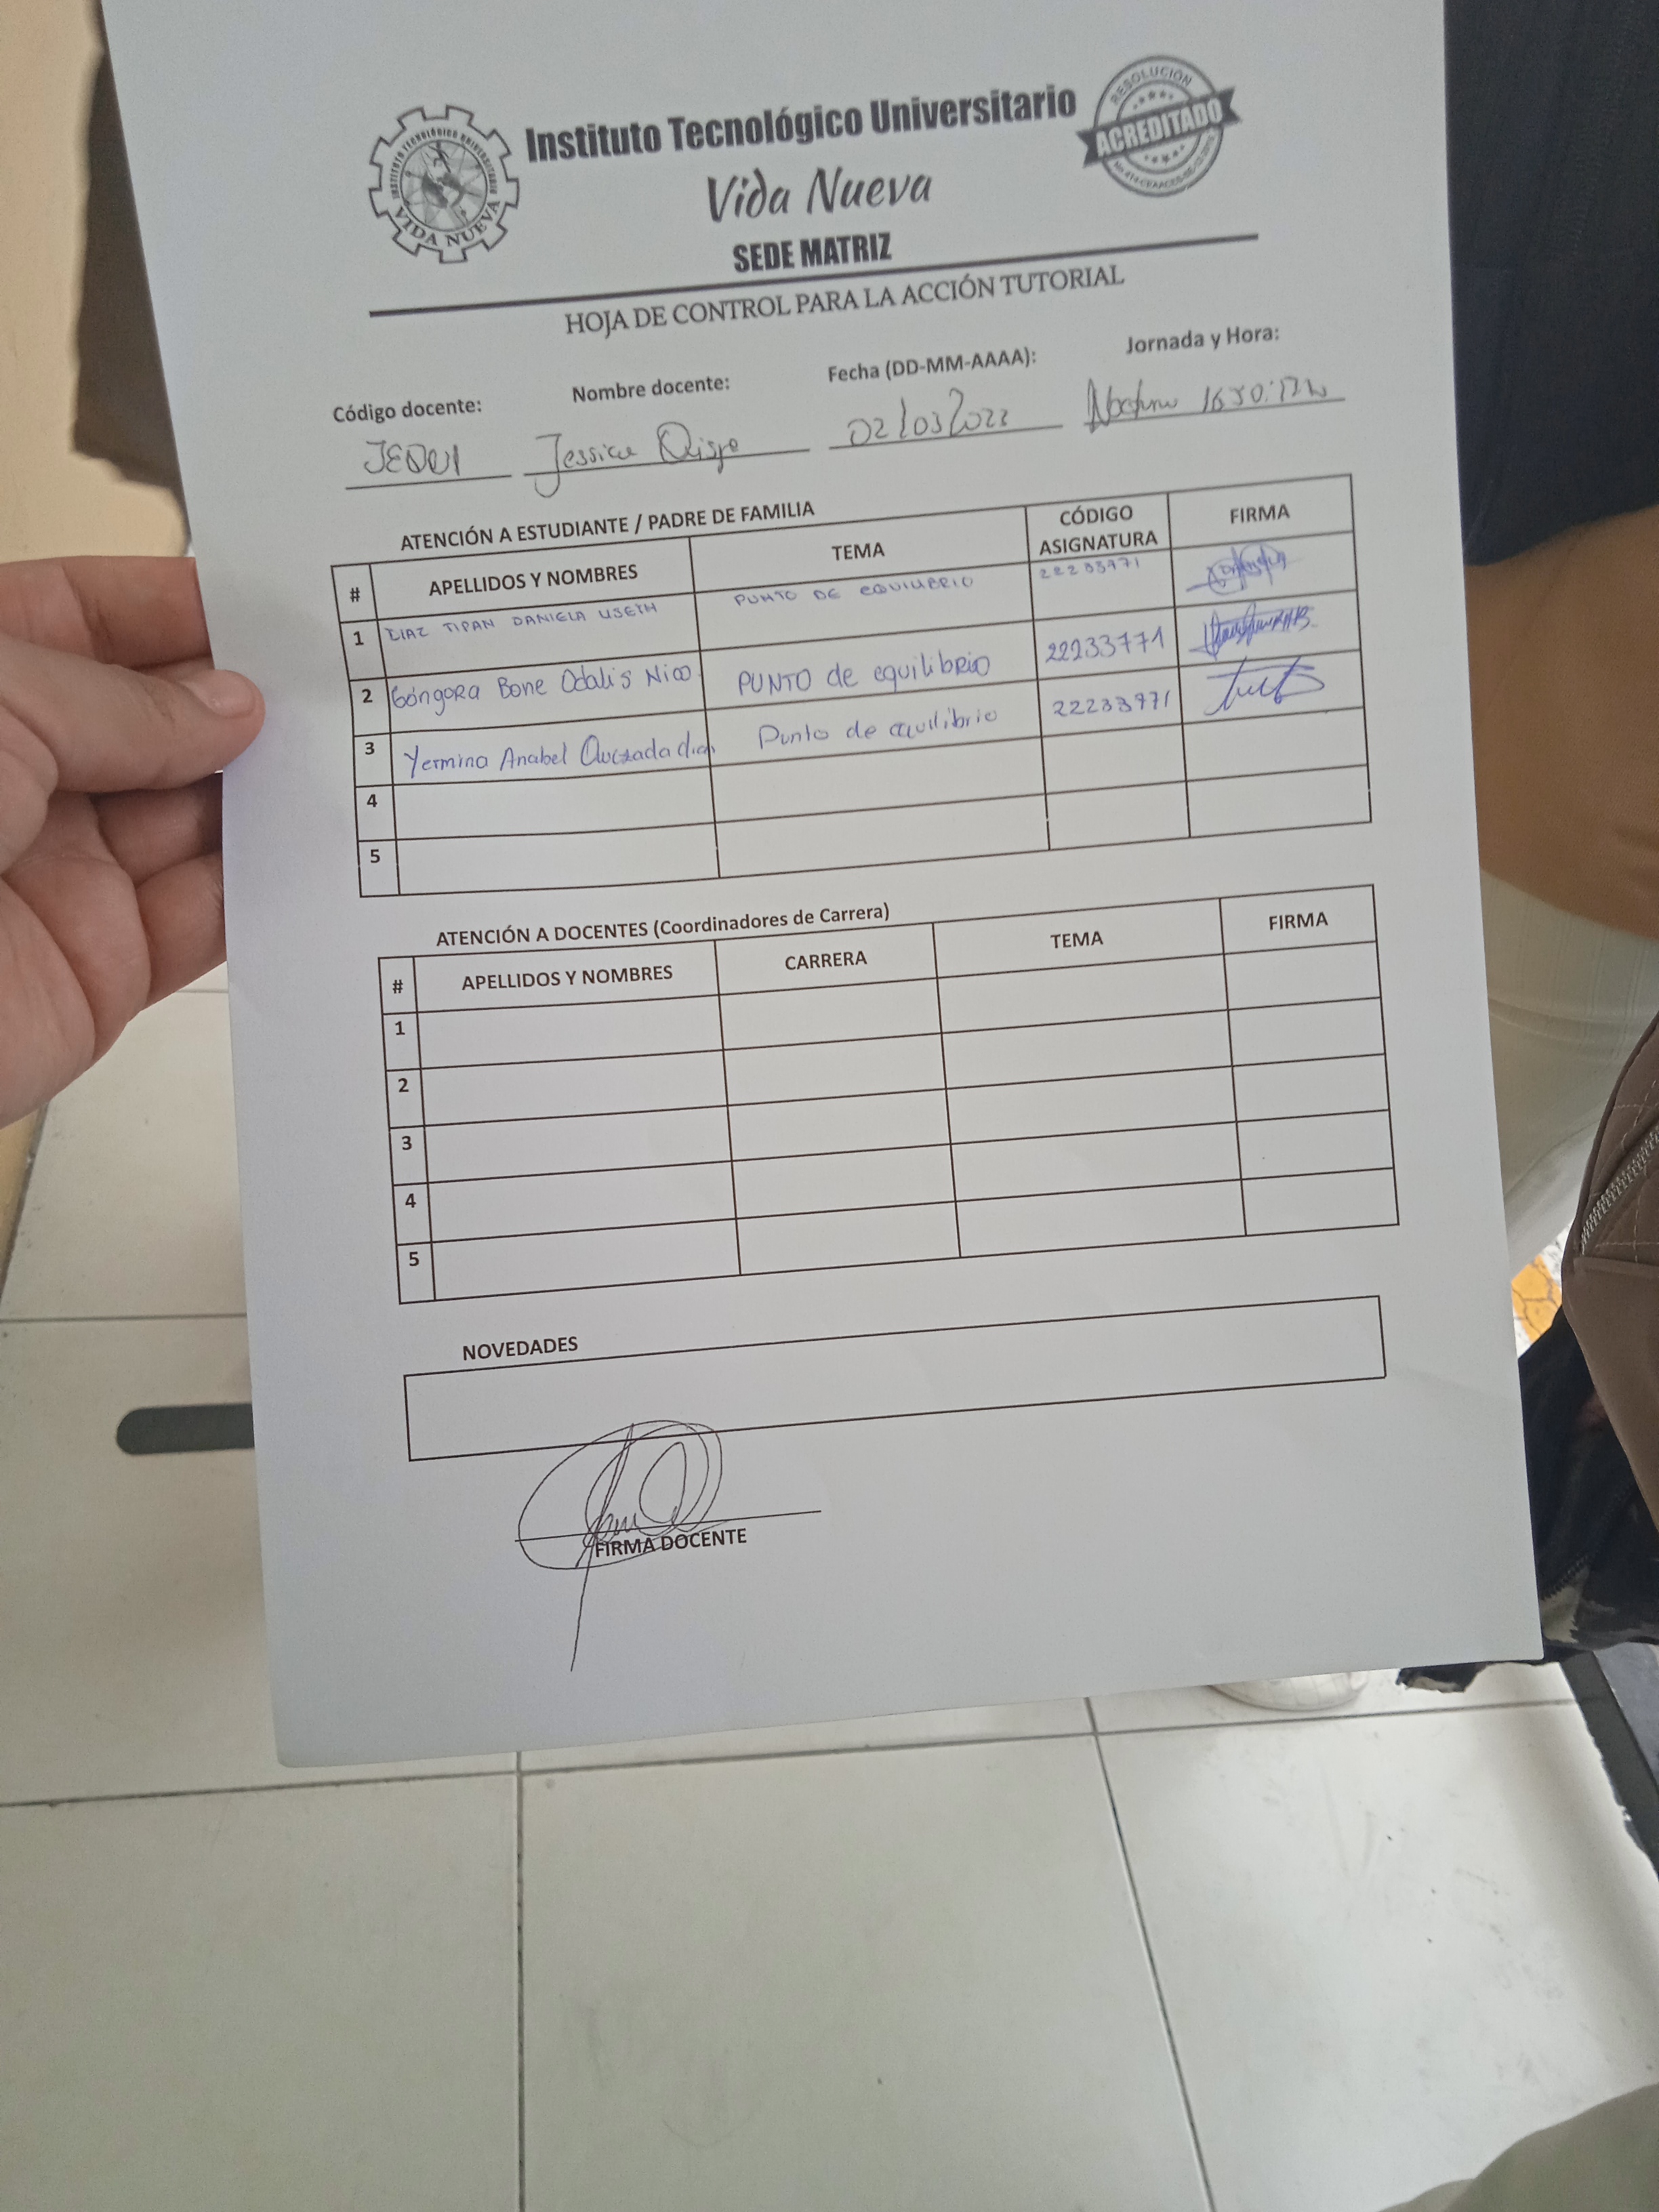 INSTITUTO TECNOLÓGICO UNIVERSITARIO
VIDA NUEVA
Instituto Tecnológico Universitario
Vida Nueva
SEDE MATRIZ
RESOLUCIÓN
ACREDITADO
HOJA DE CONTROL PARA LA ACCIÓN TUTORIAL
Código docente: Nombre docente: Fecha (DD-MM-AAAA): Jornada y Hora:
JEQUI Jessica Quispe 02/03/2023 Nocturno
ATENCIÓN A ESTUDIANTE / PADRE DE FAMILIA
# APELLIDOS Y NOMBRES TEMA CÓDIGO ASIGNATURA FIRMA
1 DIAZ TIPAN DANIELA LISETH PUNTO DE EQUILIBRIO 22233771
2 Góngora Bone Odalis Nico PUNTO de equilibrio 22233771
3 Yermina Anabel Quezada Punto de equilibrio 22233771
4
5
ATENCIÓN A DOCENTES (Coordinadores de Carrera)
# APELLIDOS Y NOMBRES CARRERA TEMA FIRMA
1
2
3
4
5
NOVEDADES
FIRMA DOCENTE